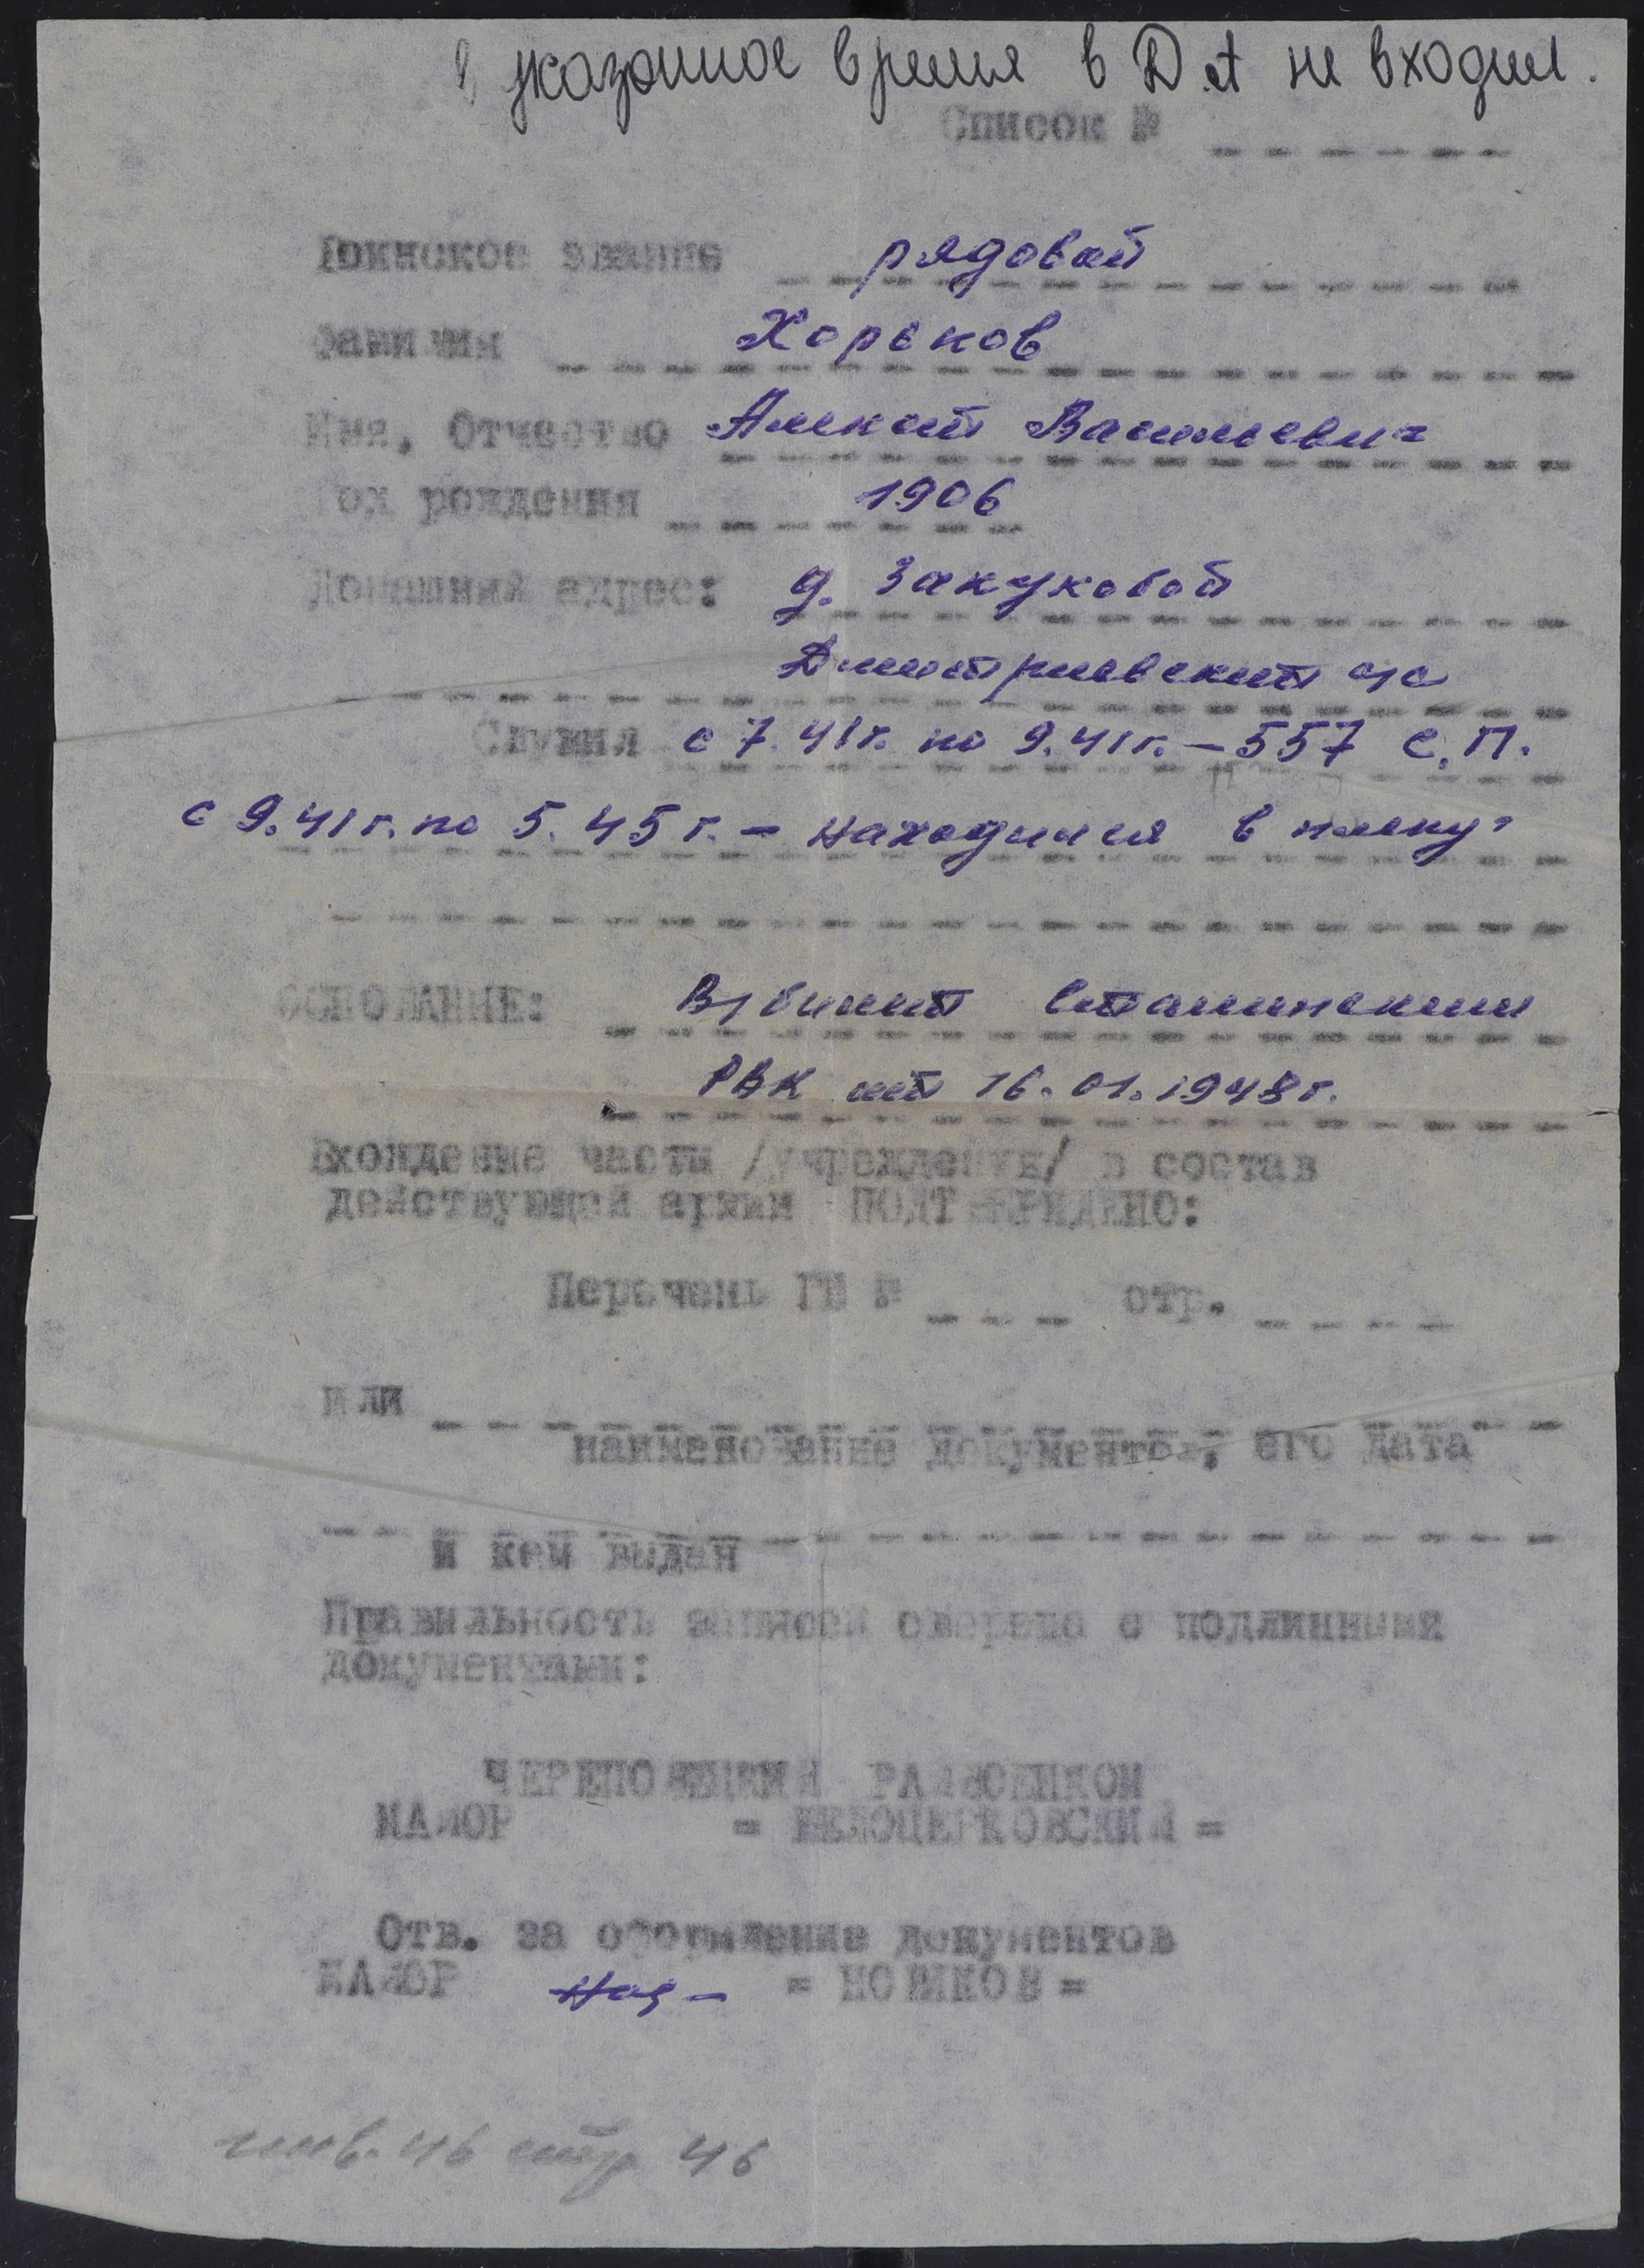 В указанное время в ДА не входил.
Список №
Воинское звание рядовой
Фамилия Хорьков
Имя, Отчество Алексей Васильевич
Год рождения 1906
Домашний адрес: д.
Дмитриевский с/с
Служил с 7.41г. по 9.41г. – 557 С.П.
с 9.41г. по 5.45г. – находился в плену
ОСНОВАНИЕ: В/билет выдан
РВК от 16.01.1948г.
Вхождение части /учреждения/ в состав
действующей армии ПОДТВЕРЖДЕНО:
Перечень ГШ № стр.
или
наименование документов, его дата
и кем выдан
Правильность записей сверено с подлинными
документами:
ЧЕРЕПОВЕЦКИЙ РАЙВОЕНКОМ
МАЙОР = БЕЛОЦЕРКОВСКИЙ =
Отв. за оформление документов
МАЙОР = НОВИКОВ =
инв. 46 стр 46